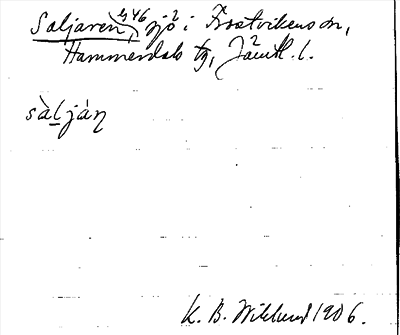 Saljaren, by 46 sjö i Frostvikens sn,
Hammerdals tg, Jämtl. l.
sàljàŋ
K. B. Wiklund 1906.